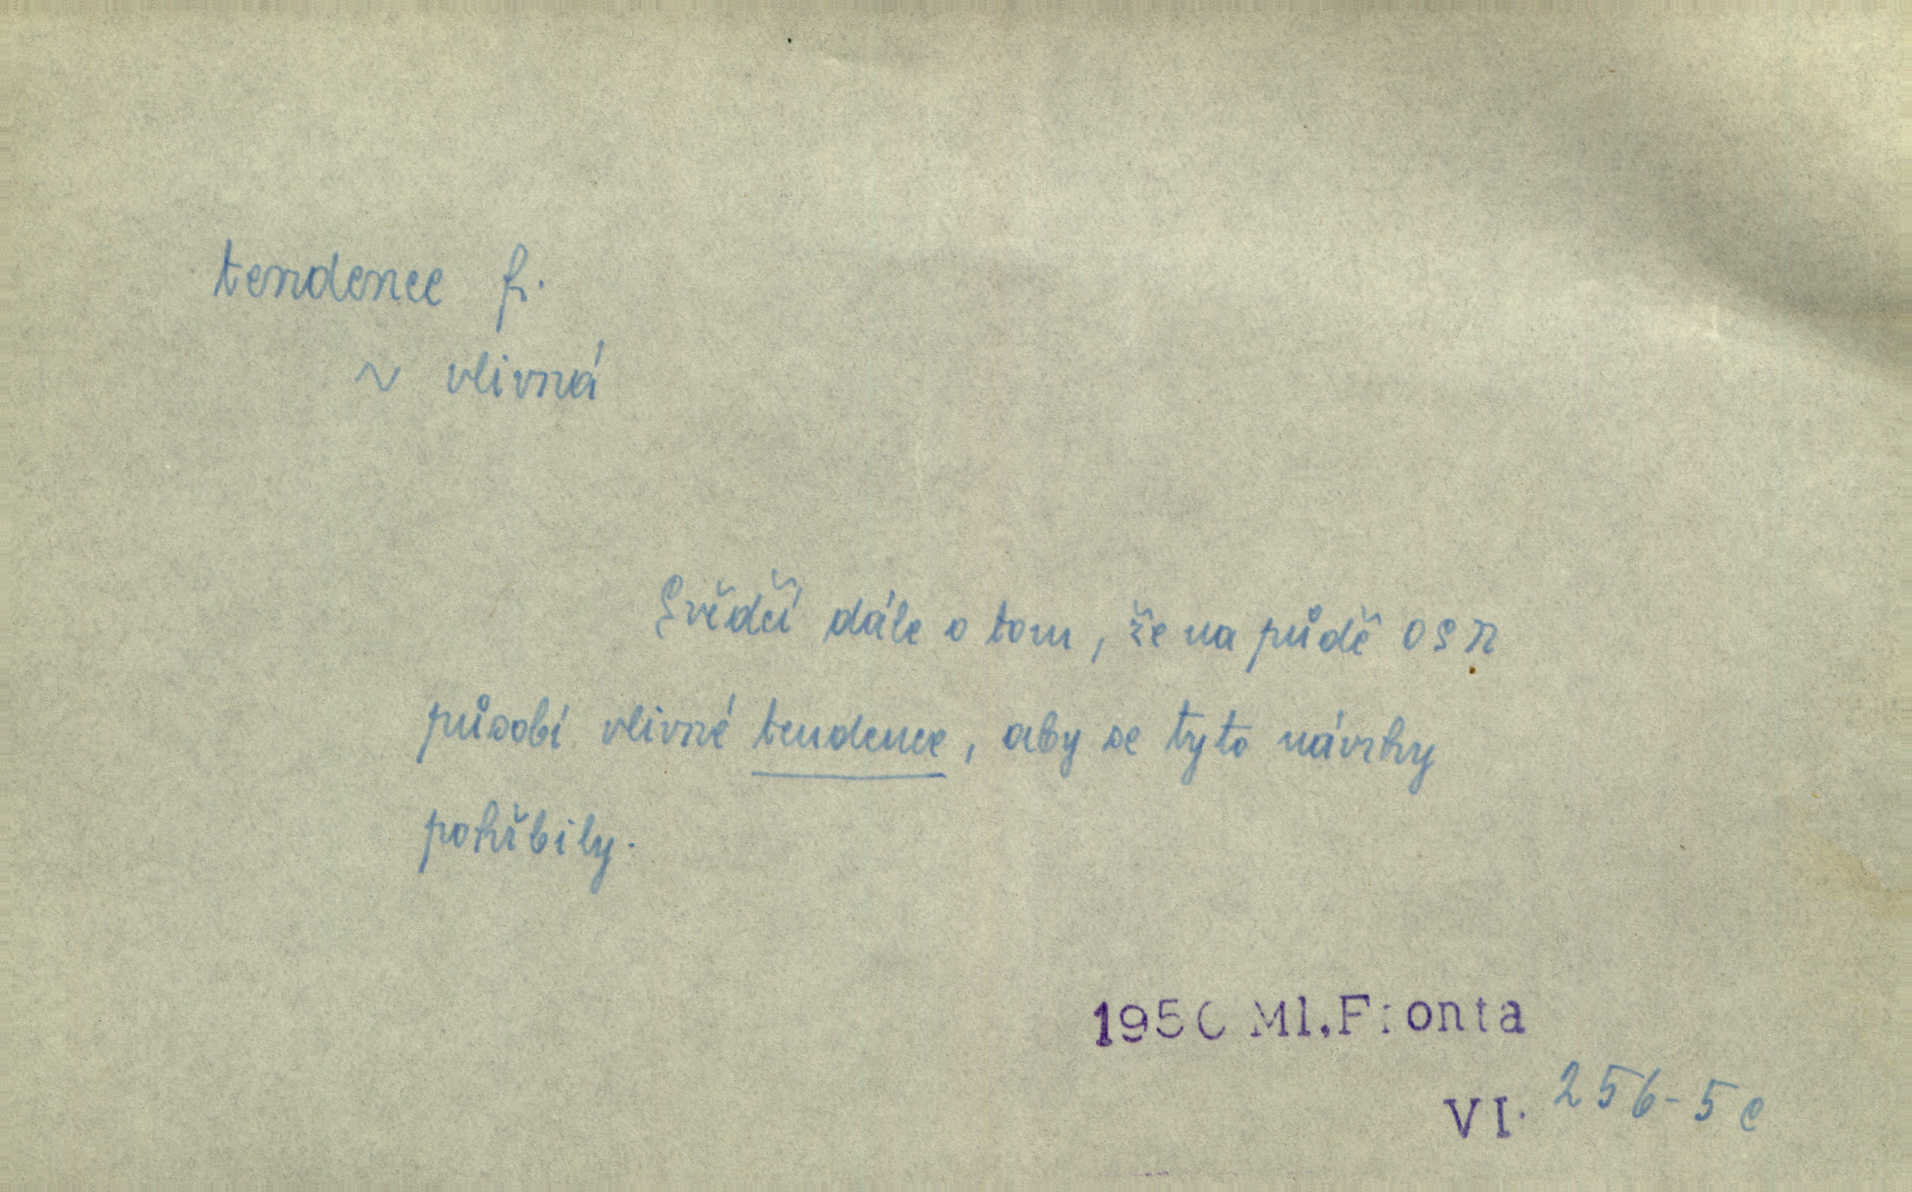 tendence f.
~ vlivná
Svědčí dále o tom, že na půdě OSN
působí vlivné tendence, aby se tyto návrhy
pohřbily.
1950 Ml.Fronta
VI. 256-5c